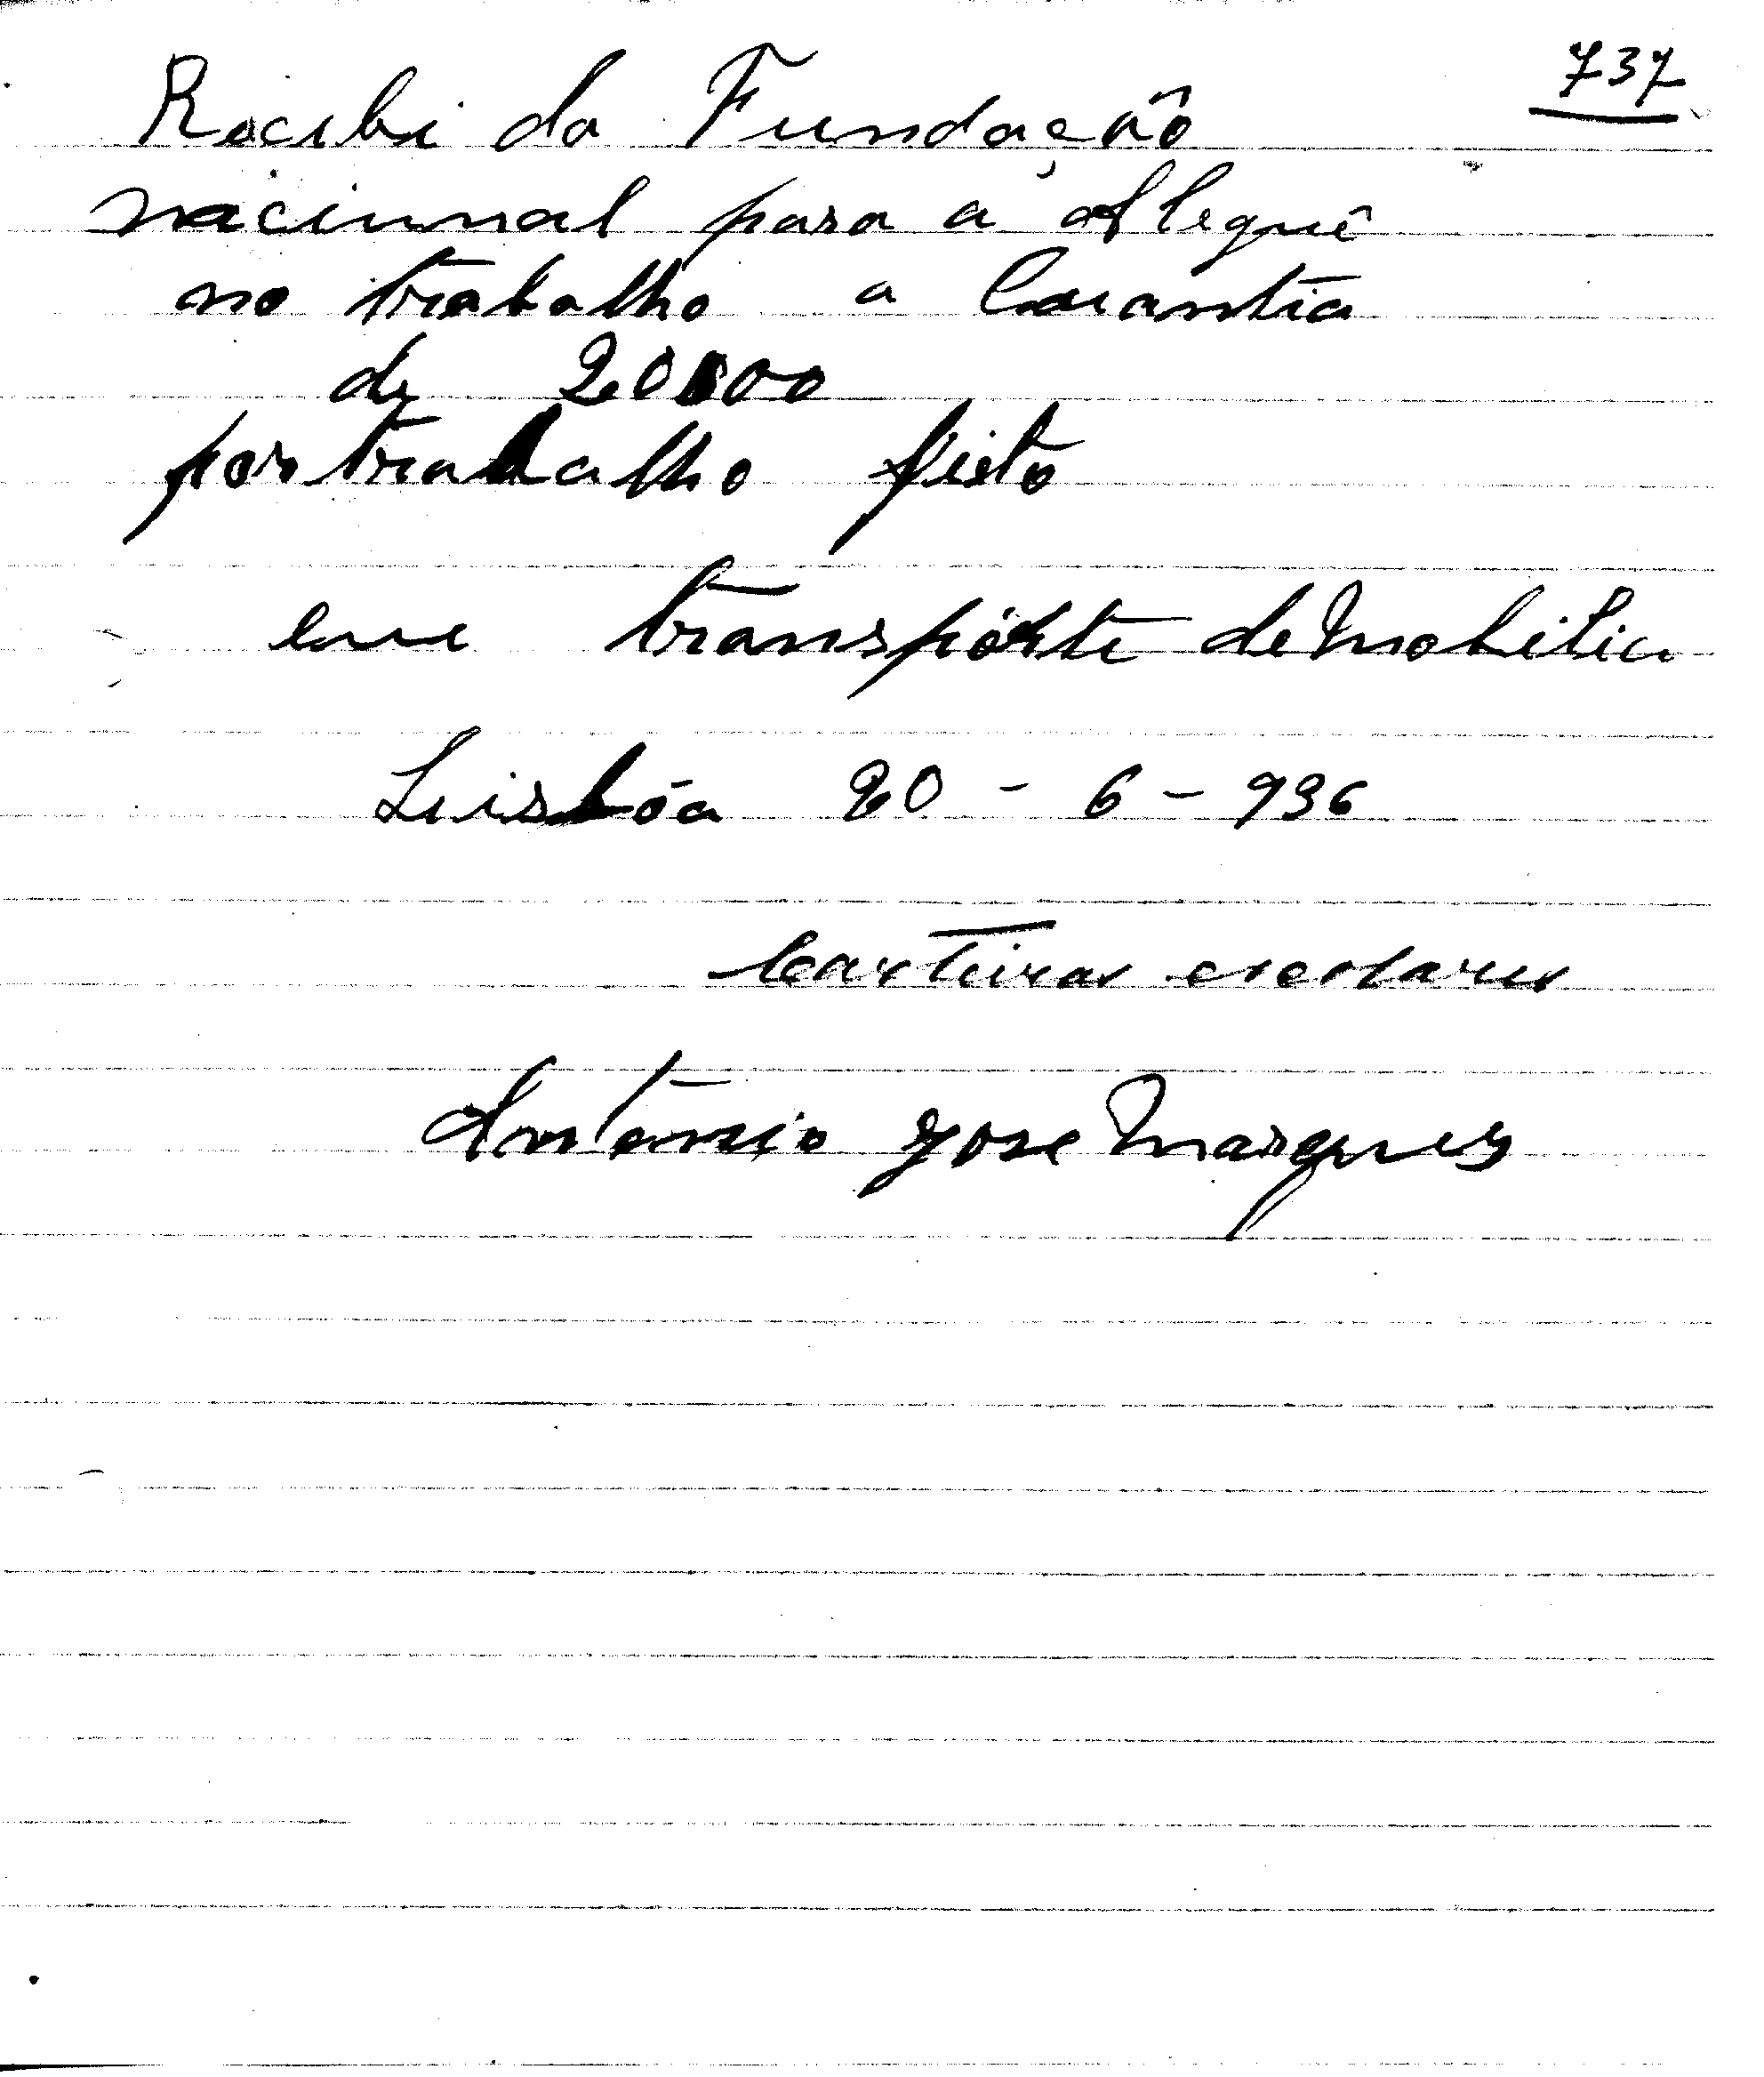 737
Recibi da Fundação
naciunal para a Alegriê
no trabalho a Carantia
de 20$00
por trabalho feito
em transpórte de Mobilia
Leisbôa 20 - 6 - 936
Carteiras escolares
António Jose Marques